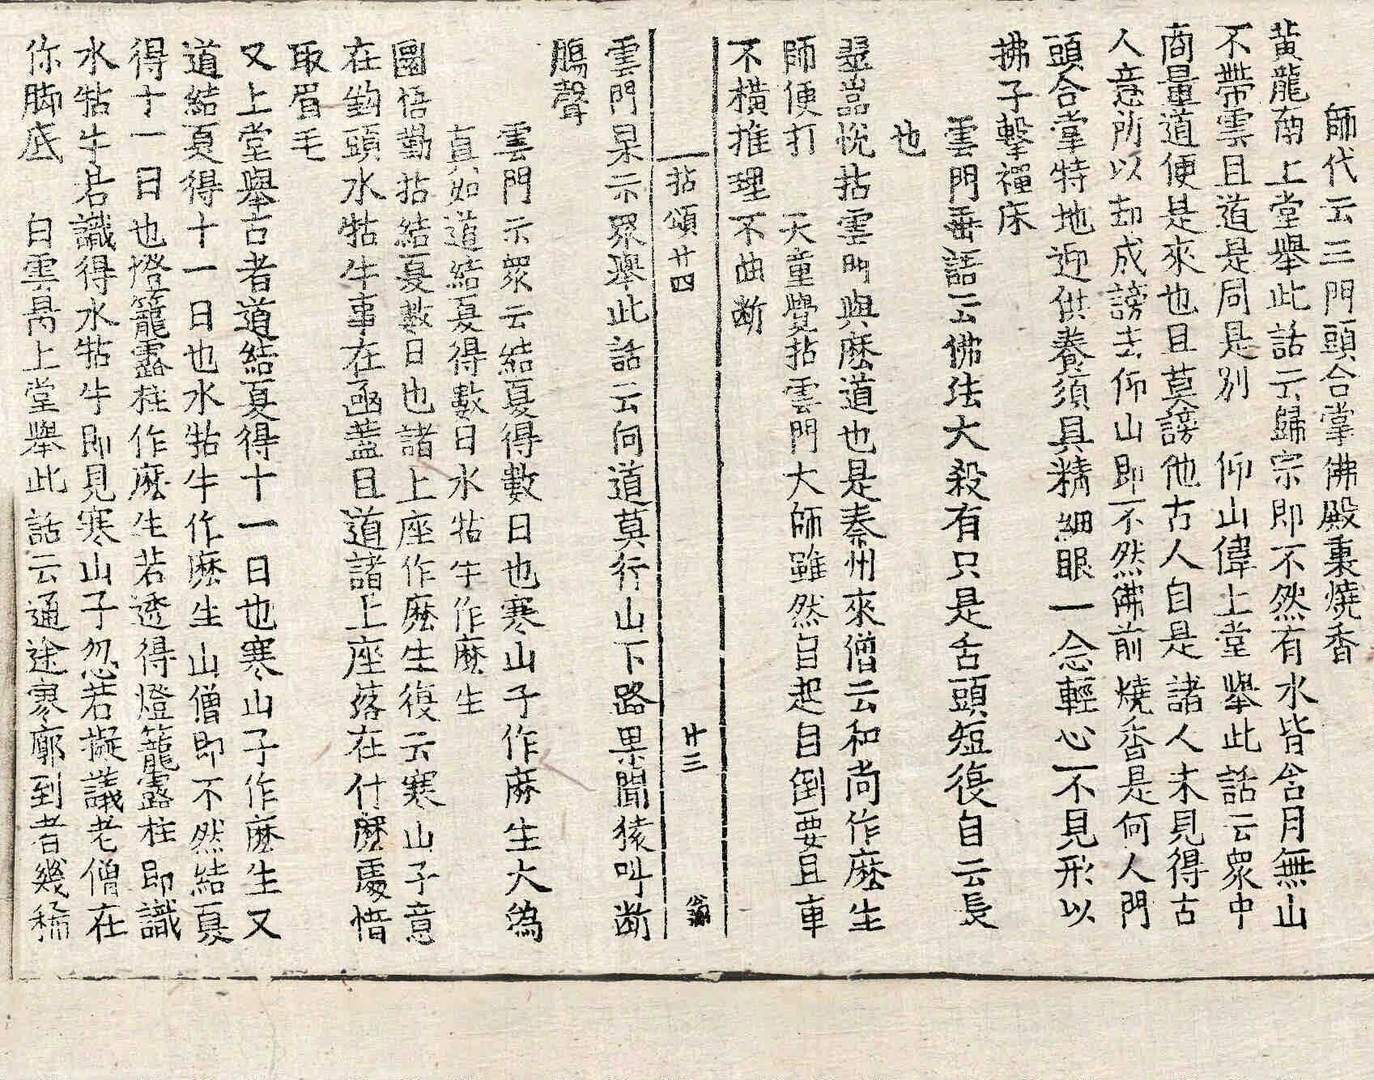 師代云三門頭合掌佛殿裏燒香
黃龍南上堂舉此話云歸宗即不然有水皆含月無山
不帶雲且道是同是別　仰山偉上堂舉此話云衆中
商量道便是來也且莫謗他古人自是諸人未見得古
人意所以却成謗去仰山即不然佛前燒香是何人門
頭合掌特地迎供養須具精細眼一念輕心不見形以
拂子擊禪床
雲門垂語云佛法大殺有只是舌頭短復自云長
也
翠嵓悅拈雲門與麽道也是秦州來僧云和尚作麽生
師便打　天童覺拈雲門大師雖然自起自倒要且車
不橫推理不曲斷
拈頌廿四　廿三
雲門杲示衆舉此話云何道莫行山下路果聞猿叫斷
膓聲
雲門示衆云結夏得數日也寒山子作麽生大溈
真如道結夏得數日水牯牛作麽生
圜悟勤拈結夏數日也諸上座作麽生復云寒山子意
在鉤頭水牯牛事在凾蓋且道諸上座落在什麽處惜
取眉毛
又上堂舉古者道結夏得十一日也寒山子作麽生又
道結夏得十一日也水牯牛作麽生山僧即不然結夏
得十一日也燈籠露柱作麽生若透得燈籠露柱即識
水牯牛若識得水牯牛即見寒山子忽若擬議老僧在
你脚底　白雲昺上堂舉此話云通途寥廓到者幾稀